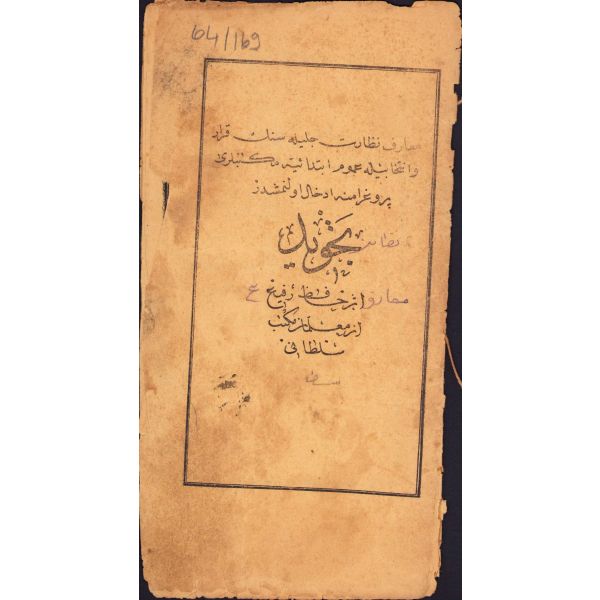 64/169
معارف نظارت جليله سنك قرار
وانتخابيله عموم ابتدائيه مكتبلرى
پروغرامنه ادخال اولنمشدر
تجويد
اثر حافظ رفيع
از معلمان مكتب
سلطانى